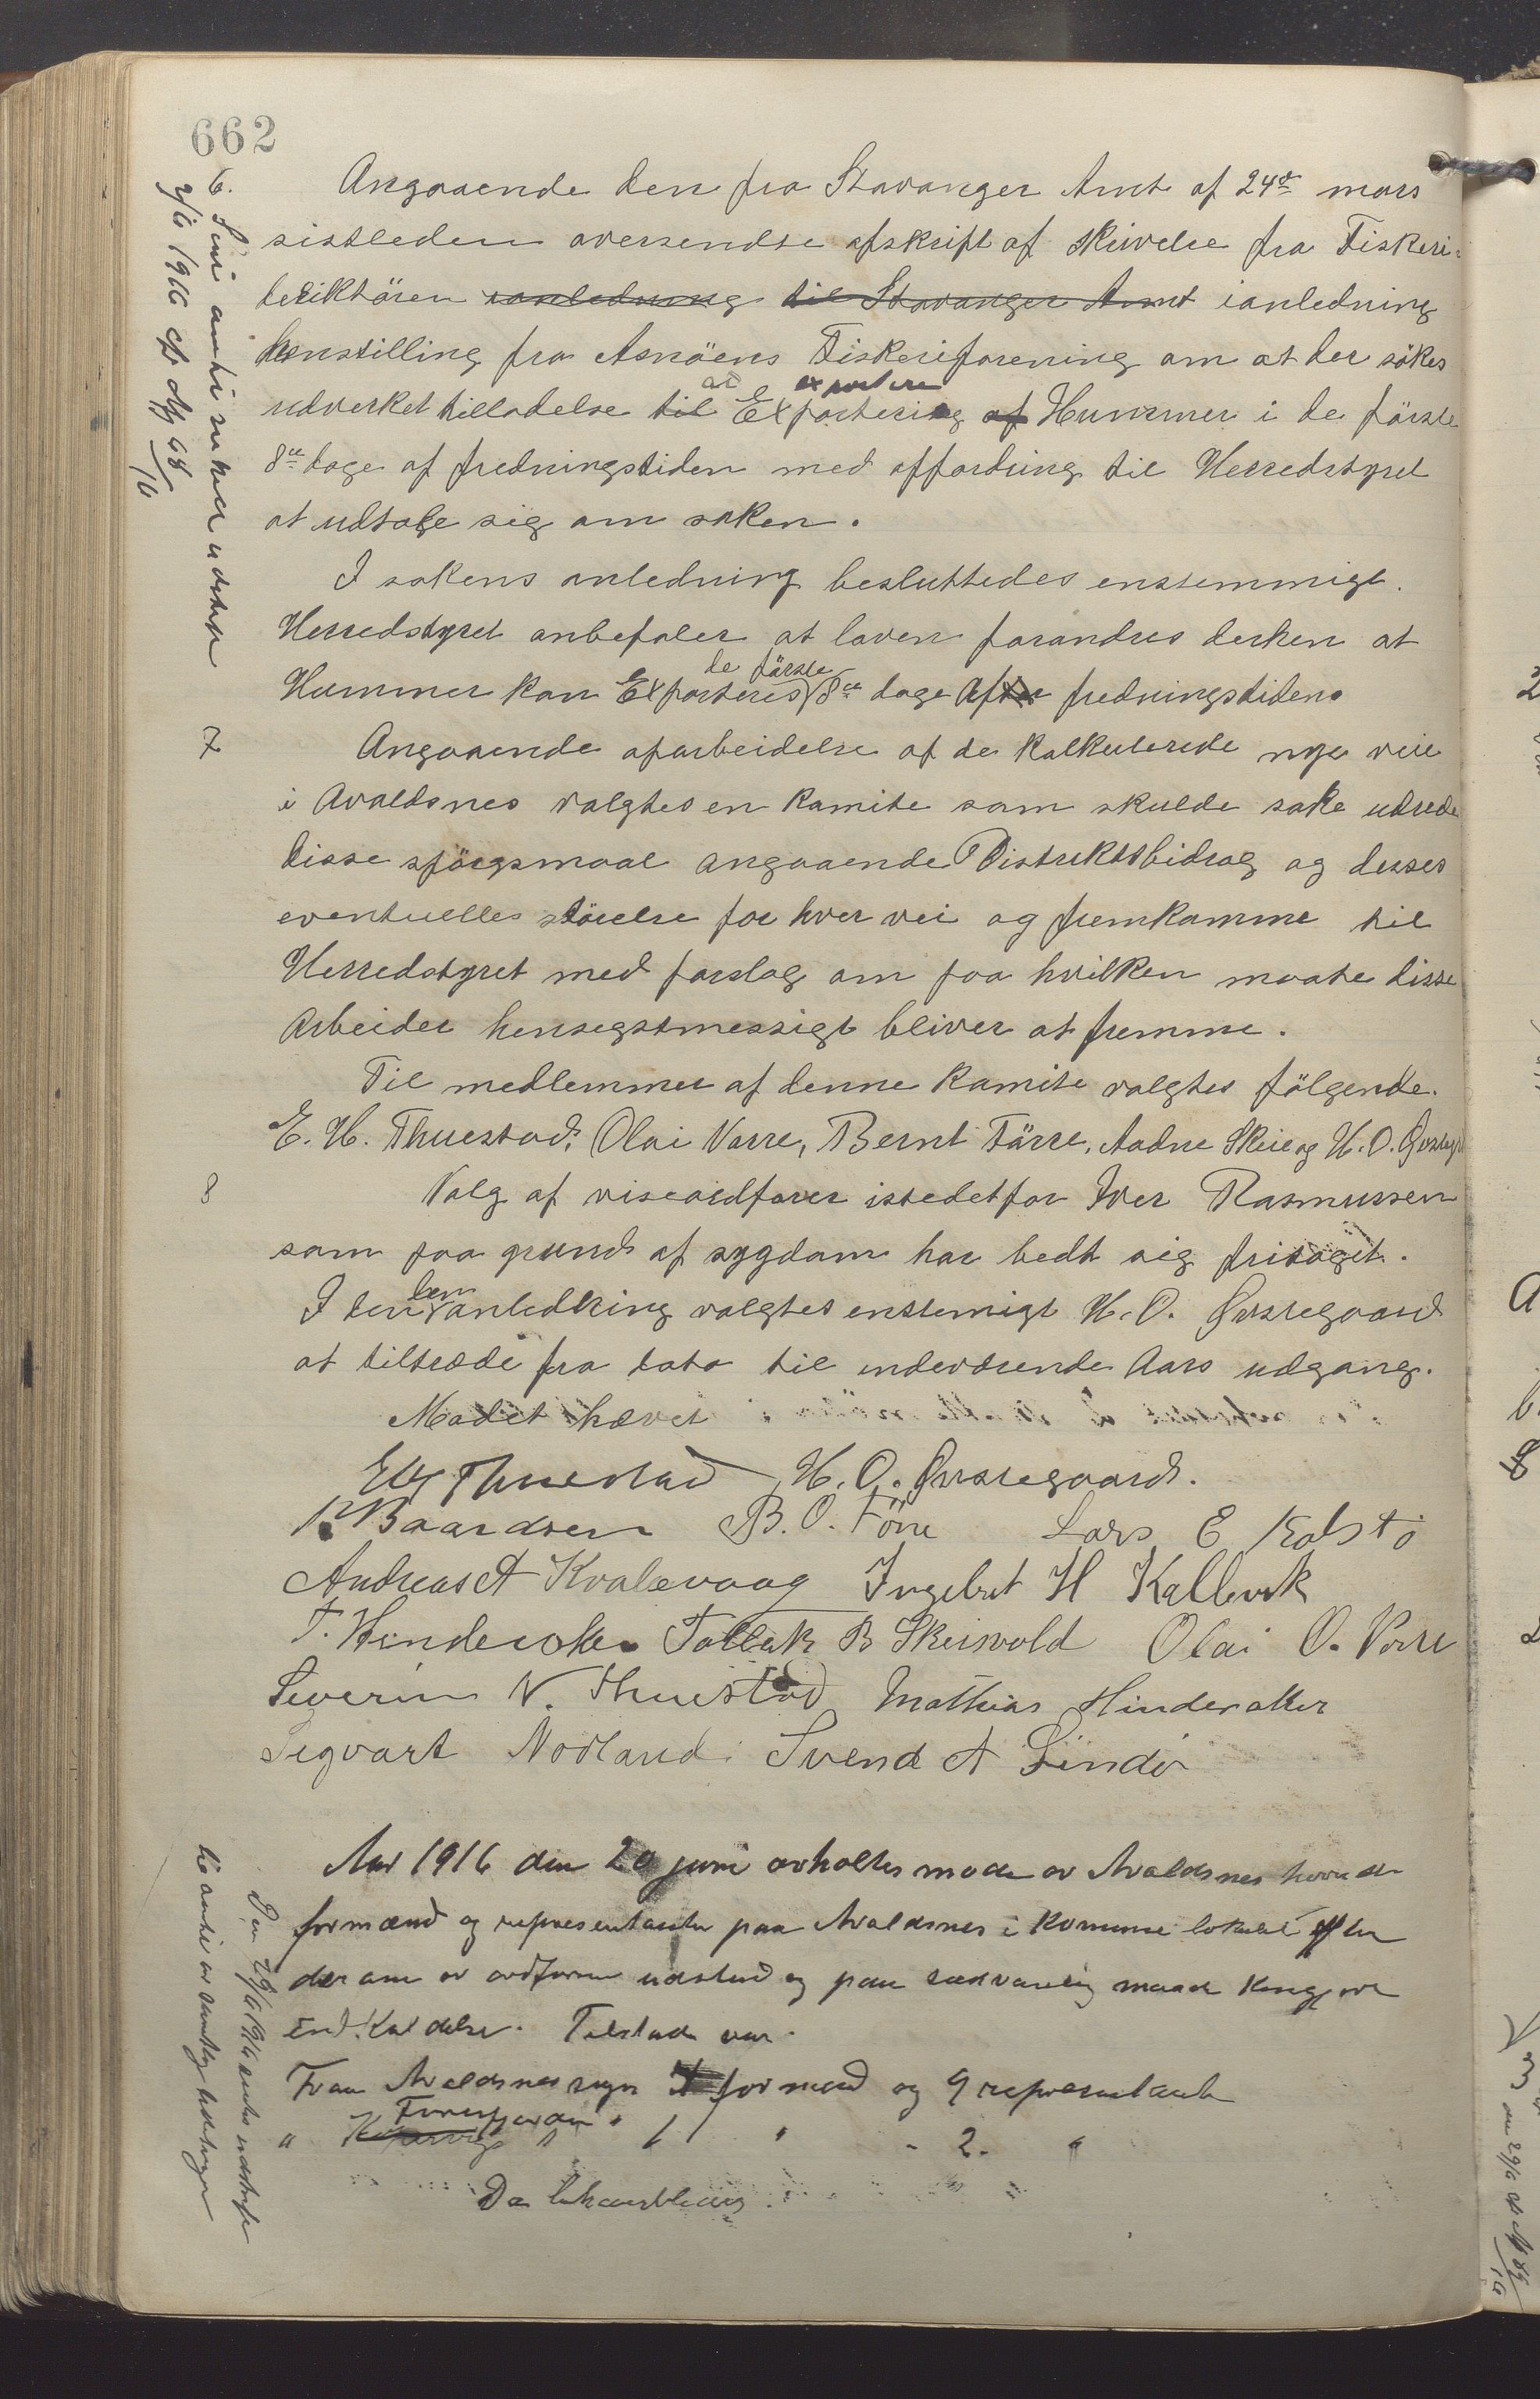 662
6.
Angaaende den fra Stavanger Amt af 24de mars
sistleden oversendte afskrift af skrivelse fra Fiskeri-
deriktören ianledning til Stavanger Amt ianledning
henstilling fra Asnöens Fiskeriforening om at der sökes
udverket tilladelse til at Exportering exportere af Hummer i de förste
8te dage af fredningstiden med opfordring til Herredstyret
at udtale sig om saken.
I sakens anledning besluttedes enstemmigt.
Herredstyret anbefaler at loven forandres derhen at
Hummer kan Exporteres de förste 8te dage After fredningstidens
7
Angaaende oparbeidelse af de kalkulerede nye veie
i Avaldsnes valgtes en Komite som skulde söke udrede
disse spörgsmaal angaaende Distriktsbidrag og desses
eventuelles störelse for hver vei og fremkomme til
Herredstyret med forslag om paa hvilken maate disse
Arbeider hensegstmessigt bliver at fremme.
Til medlemmer af denne komite valgtes fölgende.
E. H. Thuestad, Olai Vorre, Bernt Förre, Aadne Skeie og H. O. Øvregd
8
Valg af viseordförer istedetfor Iver Rasmussen
som paa grund af sygdom har bedt sig fritaget.
I den anledning valgtes enstemigt H. O. Øvregaard
at tiltræde fra dato til indeværende Aars udgang.
Mödet hævet
EH Thuestad H. O. Øvregaard.
R Baardsen B. O. Före Lars E Kolstö
Andreas A Kvalevaag Ingebret H Kallevik
T. Hinderaker Tollak B Skeisvold Olai O. Vorre
Severin N. Thuestad Mathias Hinderaker
Sigvart Nordland Svend A Lindö
Aar 1916 den 20 juni avholtes mode av Avaldsnes herreds
formænd og representanter paa Avaldsnes i Komune lokalet efter
derom av ordförer udstæd og paa sædvanlig maade kungjort
Indkaldelse. Tilstede var.
Fraa Avaldsnes sogn 7 formænd og 9 representanter
" Kopervig Förresfjorden " 1 " - 2. "
Da behandledes
2/6 1916
Den 29/6 1916